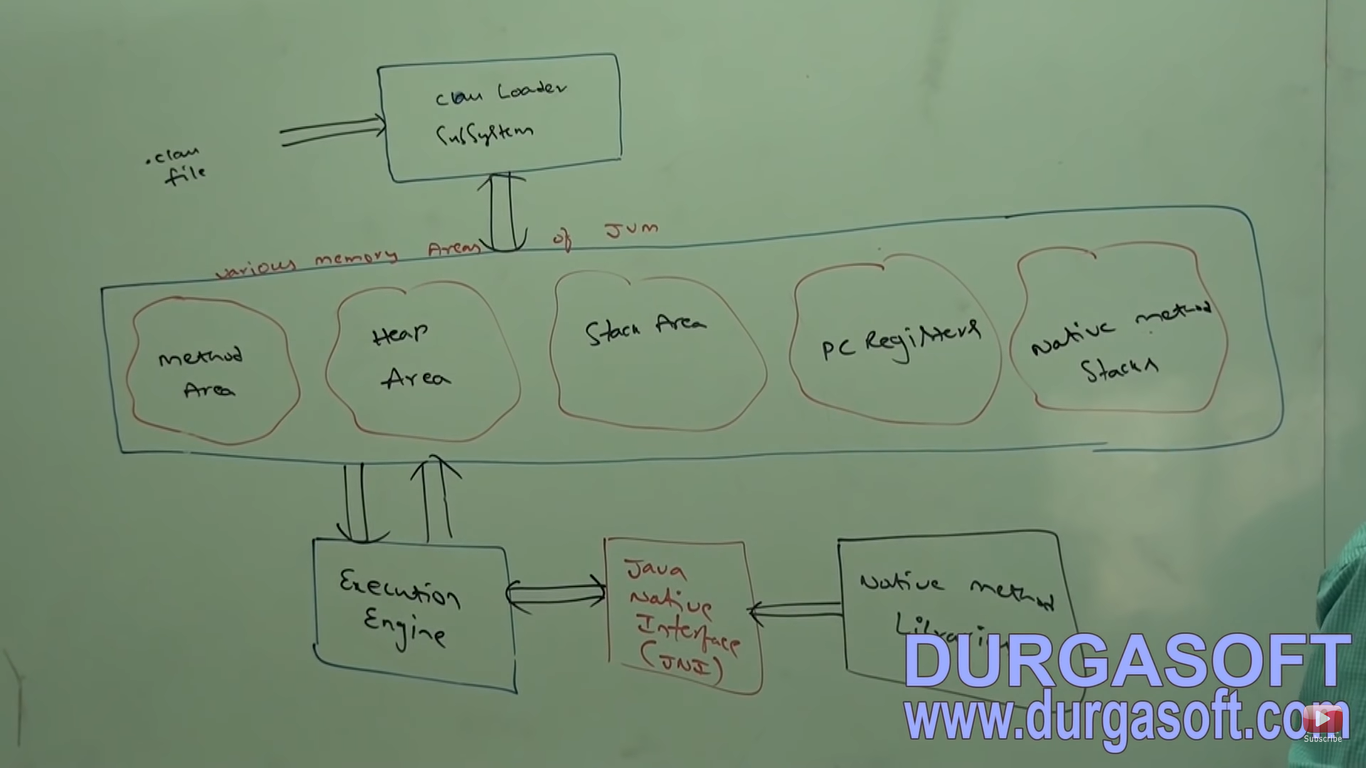 Class Loader
SubSystem
.class
file
various memory Areas of JVM
Method
Area
Heap
Area
Stack Area
PC Registers
Native method
Stacks
Execution
Engine
Java
Native
Interface
(JNI)
Native method
Libraries
DURGASOFT
www.durgasoft.com
Subscribe